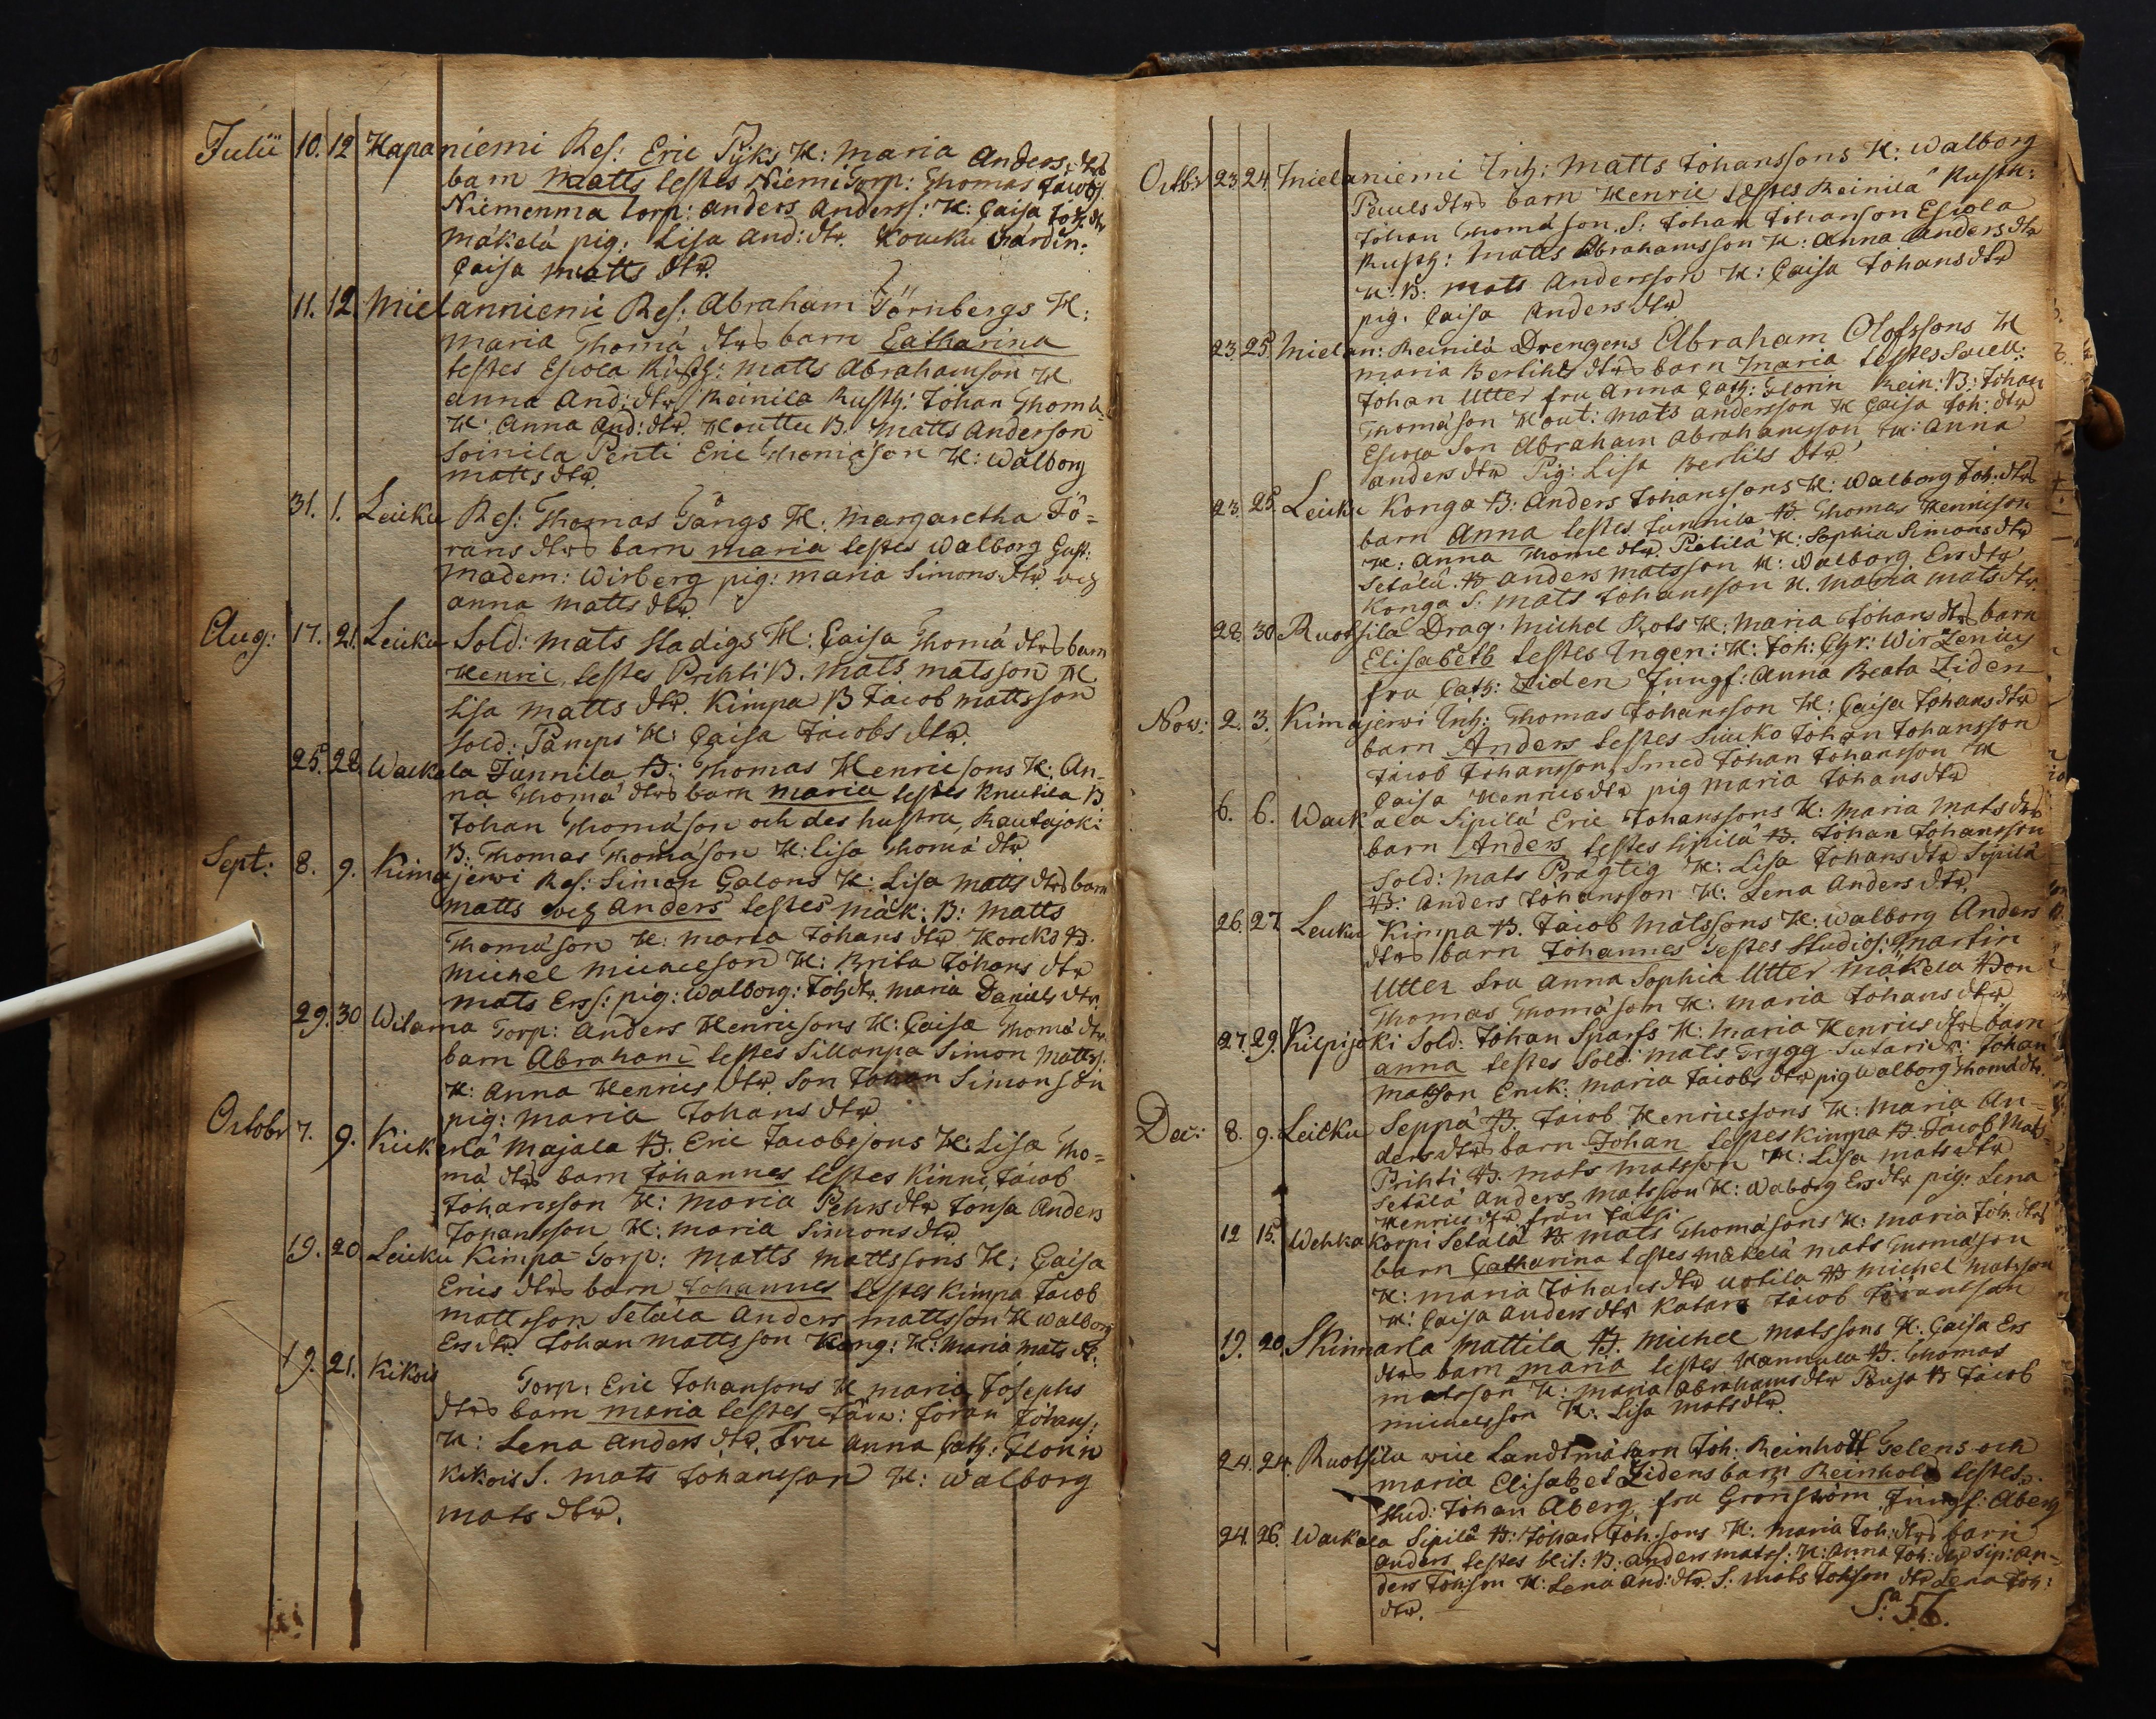 Julii 10. 12 Hapaniemi Res: Eric Pÿks H: Maria Anders dtrs
barn Matts testes Niemi Torp: Thomas Jacobs:
Niemenma torp: Anders Anderss: H: Caisa Joh: dtr
Mäkelä pig: Lisa And: dtr. Koucku
Caisa Matts dtr.
11. 12. Mielanniemi Res: Abraham Törnbergs H:
Maria Thomä dtrs barn Catharina
testes Esiola Rusth: Matts Abrahamson H
Anna And: dtr Reinila Rusth: Johan Thomä
H: Anna And: dtr. Houttu B. Matts Anderson
Soinila Penti Eric Thomäson H: Walborg
Matts dtr.
31. 1. Leucku Res: Thomas Gångs H: Margaretha Jö=
rans dtrs barn Maria testes Walborg Gust:
Madem: Wirberg pig: Maria Simons dtr och
Anna Matts dtr.
Aug: 17. 21. Leucku Sold: Mats Stadigs H: Caisa Thomä dtrs barn
Henric, testes Prihti B. Mats Matsson H.
Lisa Matts dtr. Kimpa B Jacob Mattsson
Sold: Pamps H: Caisa Jacobs dtr.
25. 28. Wackala Junnila B: Thomas Henricsons H: An-
na Thomä dtrs barn Maria testes Knutila B.
Johan Thomäson och des hustru, Rautajoki
B: Thomas Thomäson H: Lisa Thomä dtr.
Sept: 8. 9. Kimajerwi Res: Simon Galons H: Lisa Matts dtrs barn
Matts och Anders testes Mäk: B: Matts
Thomäson H: Maria Johans dtr. Horcko B.
Michel Michelson H: Brita Johans dtr
Mats Erss: pig: Walborg: Joh dtr. Maria Daniels dtr.
29. 30 Wilama Torp: Anders Henricsons H: Caisa Thomä dtrs
barn Abraham testes Sillanpä Simon Mattss:
H: Anna Henrics dtr. Son Johan Simonson
pig: Maria Johans dtr
Octobr 7. 9. Kickerlä Majala B. Eric Jacobssons H: Lisa Tho=
mä dtrs barn Johannes testes Kinni Jacob
Johansson H: Maria Pehrs dtr Jonsa Anders
Johansson H: Maria Simons dtr
19. 20. Leucku Kimpa Torp: Matts Mattssons H: Caisa
Erics dtrs barn Johannes testes Kimpa Jacob
Mattsson Setälä Anders Mattsson H Walborg
Ers dtr. Johan Mattsson Kong: H: Maria Mats dt:
19. 21. Kikois Torp: Eric Johansons H Maria Josephs
dtrs barn Maria testes Jöran Johans:
H: Lena Anders dtr. Fru Anna Cath: Florin
Kikois S. Mats Johansson H: Walborg
Mats dtr.
Octbr 23. 24. Mielaniemi Inh: Matts Johanssons H: Walborg
Pauls dtrs barn Henric testes Reinilä Rusth:
Johan Thomäson. S: Johan Johanson Esiola
Rusth: Matts Abrahamsson H: Anna Anders dtr
H: B: Mats Andersson H: Caisa Johans dtr
pig. Caisa Anders dtr
23. 25. Mielan: Reinilä Drengens Abraham Olofssons H
Maria Bertils dtrs barn Maria testes
Johan Utter fru Anna Cath: Florin Rein: B: Johan
Thomäson Hout: Mats Andersson H Caisa Joh: dtr
Esiola Son Abraham Abrahamsson H: Anna
Anders dtr Pig: Lisa Bertils dtr
23. 25. Leucku Konga B: Anders Johanssons H: Walborg Joh: dtrs
barn Anna testes Junnila B. Thomas Henricson
H: Anna Thome dtr. Pietilä H: Sophia Simons dtr
Setälä B Anders Matsson H: Walborg Ers dtr
Konga S: Mats Johansson H. Maria Mats dtr.
28. 30 Ruotsila Drag: Michel Rots H: Maria Johans dtrs barn
Elisabeth testes Ingen: H: Joh: Chr: Wirzenius
fru Cath: Ziden Jungf: Anna Beata Ziden
Nov: 2. 3. Kimajerwi Inh: Thomas Johansson H: Caisa Johans dtr
barn Anders testes Johan Johansson
Jacob Johansson, Smed Johan Johansson H
Caisa Henrics dtr pig Maria Johans dtr
6. 6. Wackala Sipilä Eric Johanssons H: Maria Mats dtrs
barn Anders testes Sipilä B. Johan Johansson
Sold: Mats Prägtig H: Lisa Johans dtr Sipilä
B: Anders Johansson H: Lena Anders dtr.
26. 27 Leucku Kimpa B. Jacob Matssons H: Walborg Anders
dtrs barn Johannes testes Studios: Martin
Utter fru Anna Sophia Utter Mäkelä Bon
Thomas Thomäson H: Maria Johans dtr,
27. 29. Kilpijoki Sold: Johan Sparfs H: Maria Henrics dtrs barn
Anna testes Sold: Mats Trygg Sutari Johan
Matsson Enck: Maria Jacobs dtr pig Walborg Thomä dtr.
Dec: 8. 9. Leucku Seppä B. Jacob Henricssons H: Maria An-
ders dtrs barn Johan testes Kimpa B. Jacob Mats-
Prihti B. Mats Matsson H: Lisa Mats dtr
Setälä Anders Matsson H: Waborg Ers dtr pig: Lena
Henrics dtr från
12 15. Wehkakorpi Setälä B Mats Thomäsons H: Maria Joh: dtrs
barn Catharina testes Mäkelä Mats Thomäson
H: Maria Johans dtr Uotila B Michel Matsson
H: Caisa Anders dtr Katara Jacob
19. 20. Skinnarla Mattila B. Michel Matssons H: Caisa Ers
dtrs barn Maria testes Hannula B. Thomas
Matsson H: Maria Abrahams dtr Pausa B Jacob
Michelsson H: Lisa Mats dtr.
24. 24. Ruotsila vice Landtmätarn Joh: Reinholt Gelens och
Maria Elisabet Zidens barn Reinhold testes.
Stud: Johan Åberg, fru Grönström, Jungf: Åberg
24. 26. Wackala Sipilä B: Johan Joh:sons H: Maria Joh: dtrs barn
Anders testes B. Anders Matss: H: Anna Joh: dtr Sip: An-
ders Johson H: Lena And: dtr. S: Mats Johson dtr Lena Joh:
dtr.
S:a 56.